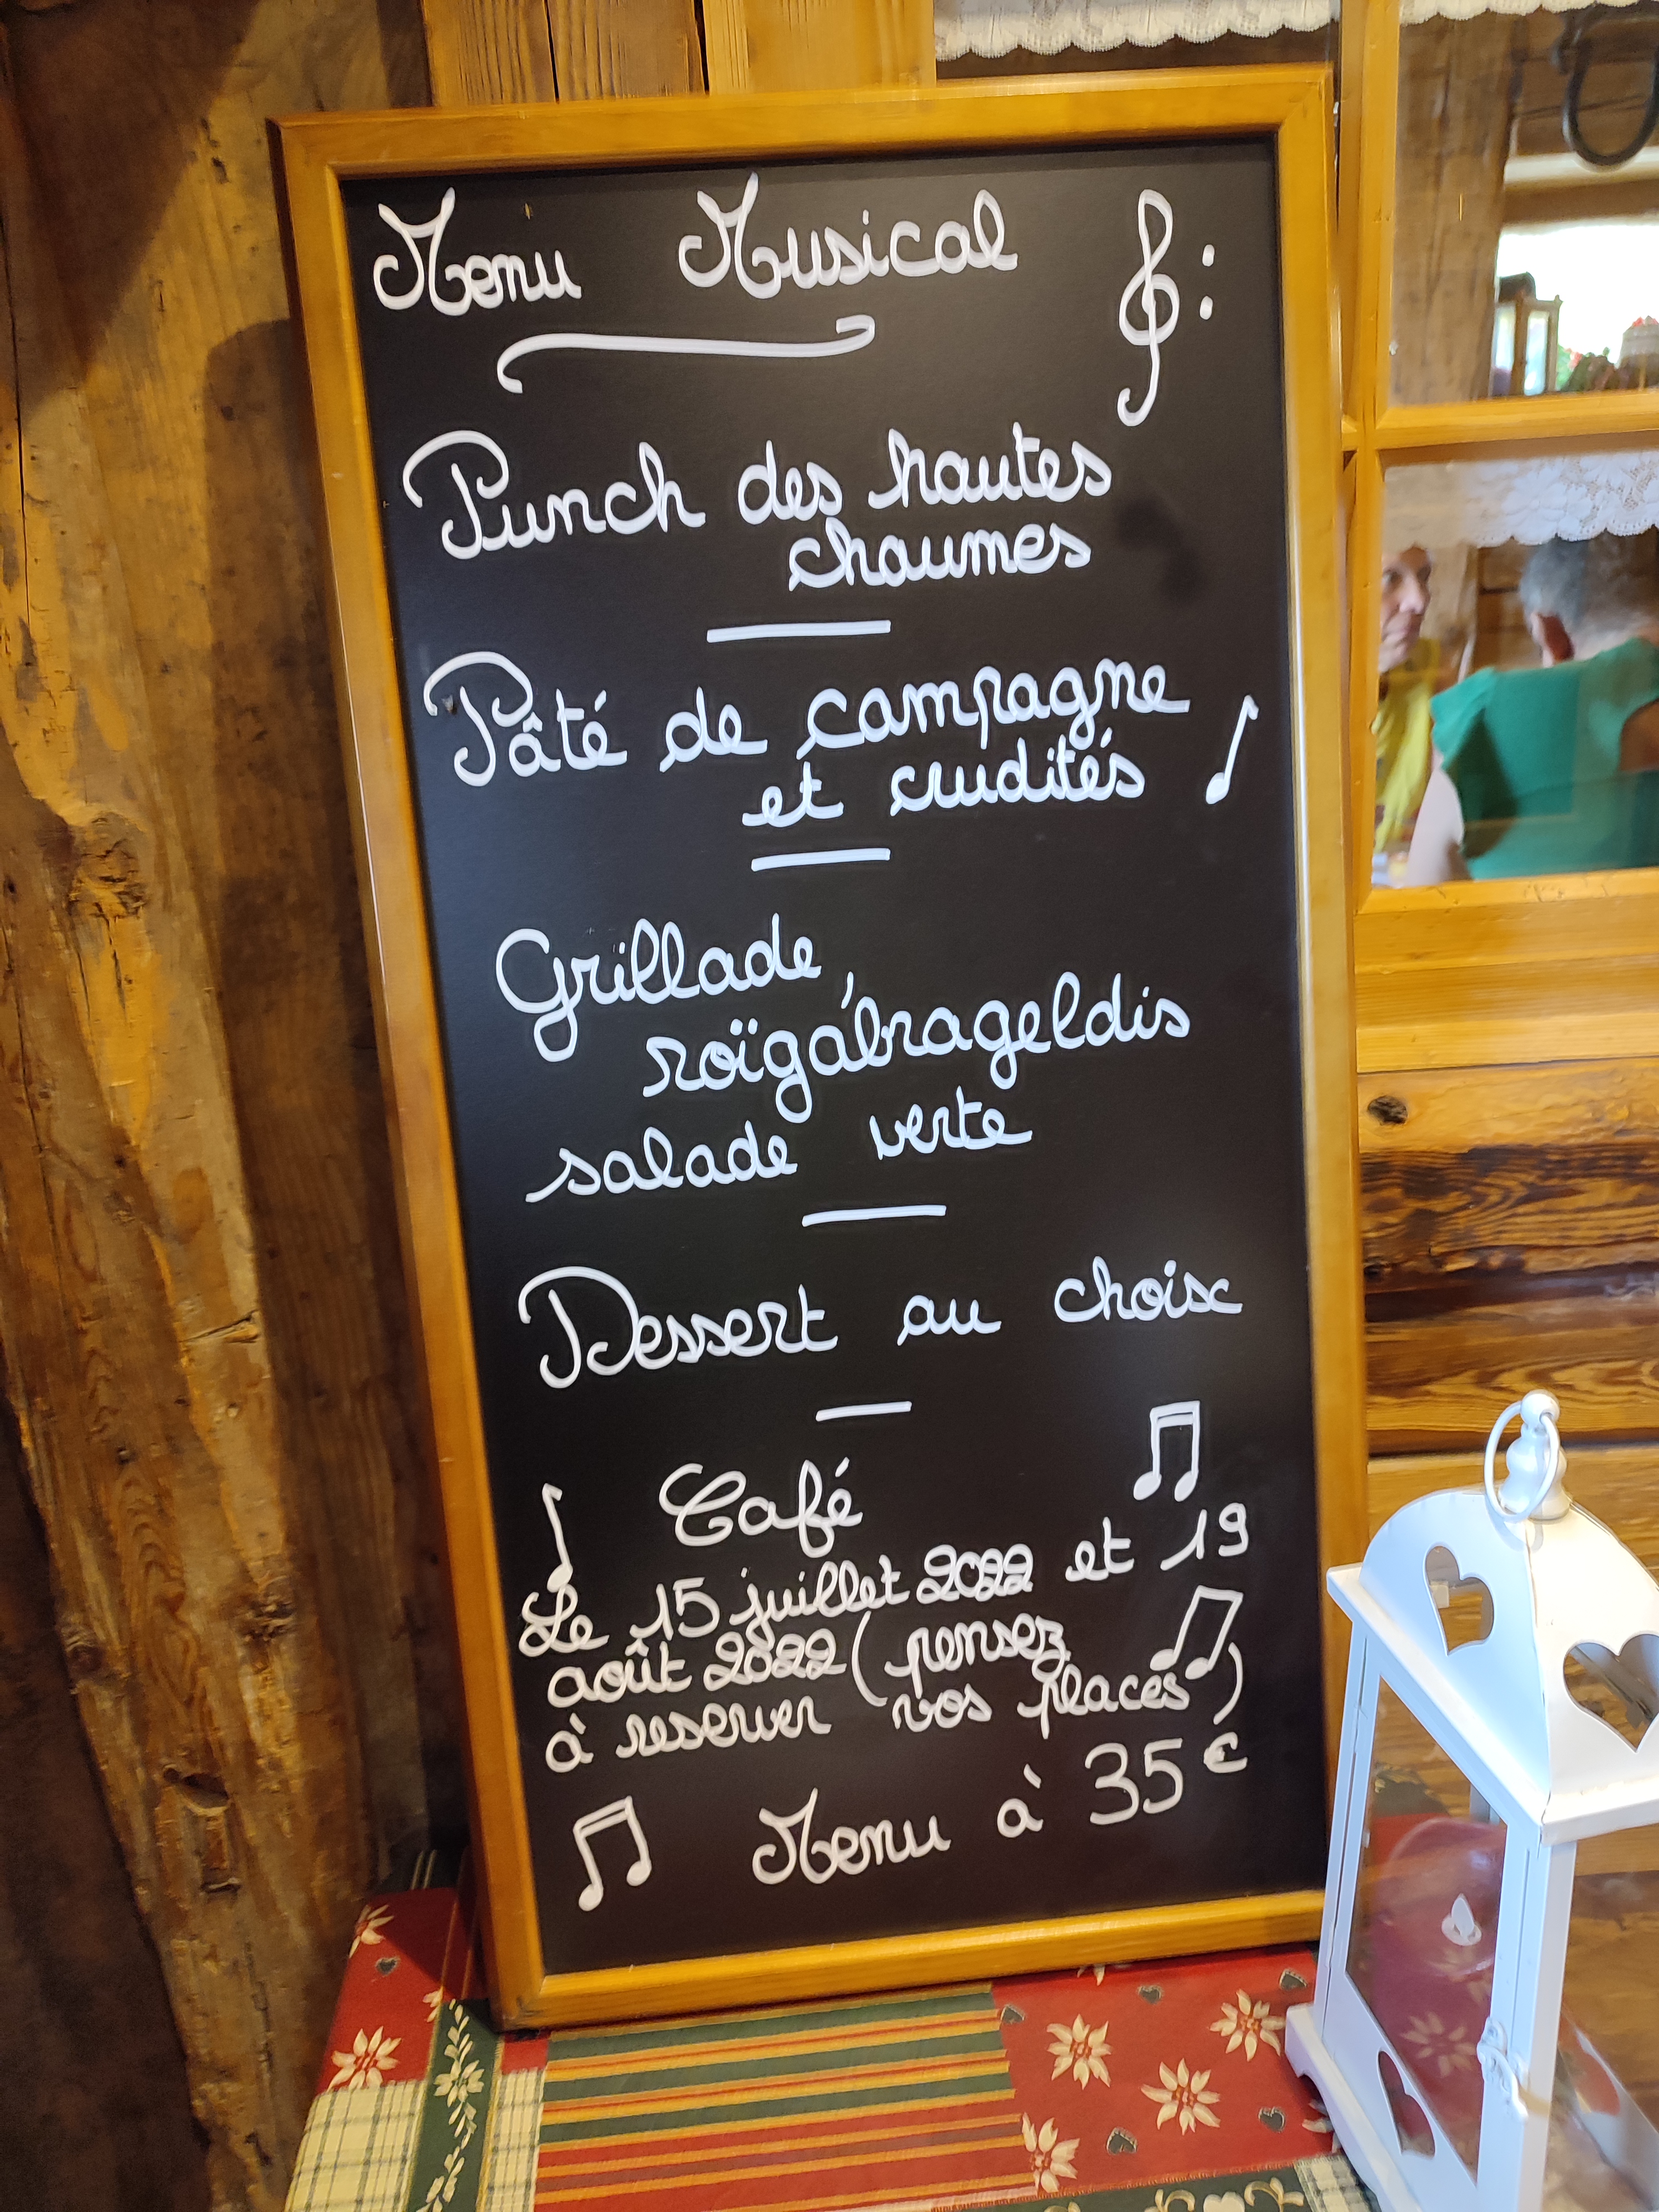 Menu Musical :
Punch des hautes
chaumes
Pâté de campagne
et crudités
Grillade,
roïgabrageldis
salade verte
Dessert au choix
Café
Le 15 juillet 2022 et 19
août 2022 (pensez
à reserver vos places)
Menu à 35€